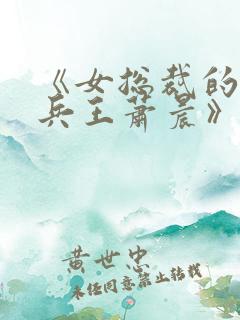 《女总裁的
兵王萧晨》
黄世忠
未经同意禁止转载